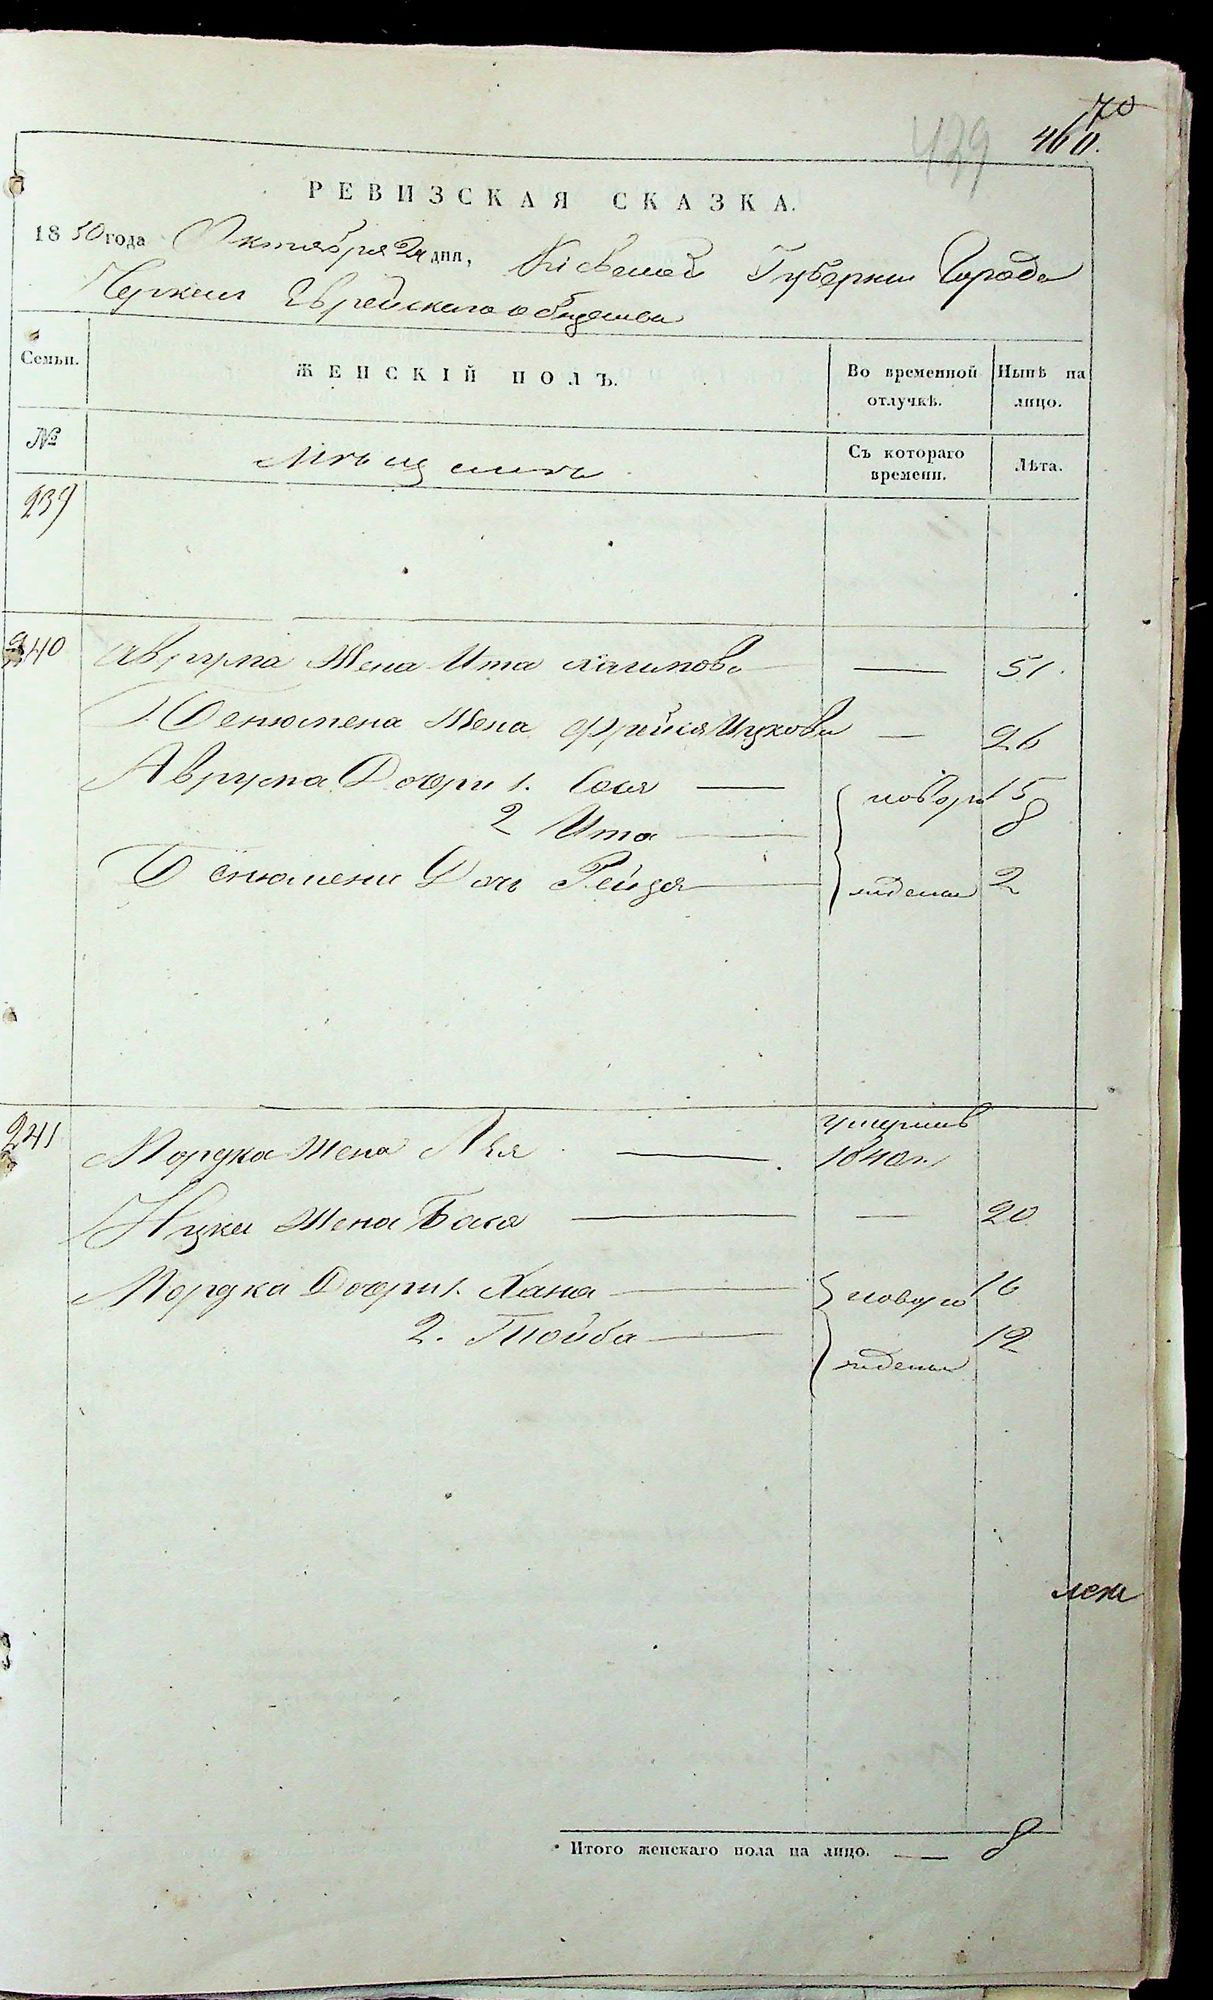 70
439
460.
РЕВИЗСКАЯ СКАЗКА.
1850 года Октября 24 дня, Кіевской Губерніи Города
Черкасъ Еврейскаго общества
Семьи.
ЖЕНСКІЙ ПОЛЪ.
Во временной отлучкѣ.
Нынѣ на лицо.
№
Мѣщанъ
Съ котораго времени.
Лѣта.
239
240
Аврума Жена Ита Хаимова — 51.
Бенюмена Жена Фрейга Ицкова — 26
Аврума Дочери 1. Сося — новоро 15
2 Ита — 8
Бенюмена Дочь Рейзя — жденны 2
241
Мордка Жена Лея — умершая 1840 г.
Ицки Жена Бася — — 20
Мордка Дочери 1. Хана — новоро 16
2. Тойба — 12
жденны
Итого женскаго пола на лицо. — 8